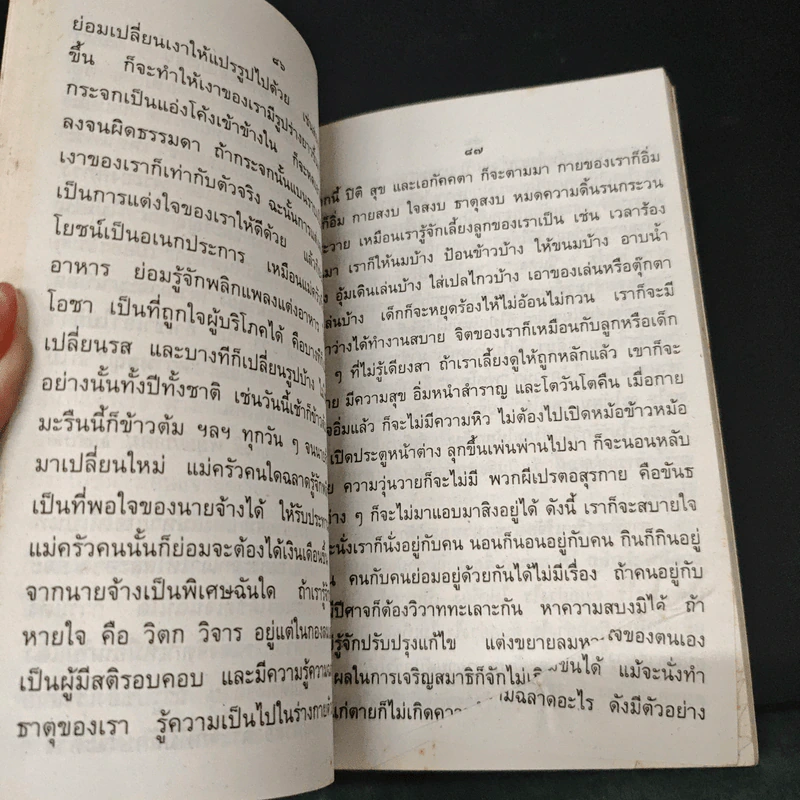 ๘๖
ย่อมเปลี่ยนเงาให้แปรรูปไปด้วย
ขึ้น ก็จะทำให้เงาของเรามีรูปร่างยาวขึ้น
กระจกเป็นแอ่งโค้งเข้าข้างใน ก็จะ
ลงจนผิดธรรมดา ถ้ากระจกนั้นแบน
เงาของเราก็เท่ากับตัวจริง ฉะนั้นการ
เป็นการแต่งใจของเราให้ดีด้วย แล้ว
โยชน์เป็นอเนกประการ เหมือนแม่ครัว
อาหาร ย่อมรู้จักพลิกแพลงแต่งอาหาร
โอชา เป็นที่ถูกใจผู้บริโภคได้ คือบางที
เปลี่ยนรส และบางทีก็เปลี่ยนรูปบ้าง
อย่างนั้นทั้งปีทั้งชาติ เช่นวันนี้เช้าก็ข้าวต้ม
มะรืนนี้ก็ข้าวต้ม ฯลฯ ทุกวัน ๆ จน
มาเปลี่ยนใหม่ แม่ครัวคนใดฉลาดรู้จัก
เป็นที่พอใจของนายจ้างได้ ให้รับประทาน
แม่ครัวคนนั้นก็ย่อมจะต้องได้เงินเดือนขึ้น
จากนายจ้างเป็นพิเศษฉันใด ถ้าเรารู้จัก
หายใจ คือ วิตก วิจาร อยู่แต่ในกองลม
เป็นผู้มีสติรอบคอบ และมีความรู้ความ
ธาตุของเรา รู้ความเป็นไปในร่างกาย
๘๗
กนี้ ปีติ สุข และเอกัคคตา ก็จะตามมา กายของเราก็อิ่ม
ก็อิ่ม กายสงบ ใจสงบ ธาตุสงบ หมดความดิ้นรนกระวน
ะวาย เหมือนเรารู้จักเลี้ยงลูกของเราเป็น เช่น เวลาร้อง
มา เราก็ให้นมบ้าง ป้อนข้าวบ้าง ให้ขนมบ้าง อาบน้ำ
อุ้มเดินเล่นบ้าง ใส่เปลไกวบ้าง เอาของเล่นหรือตุ๊กตา
เล่นบ้าง เด็กก็จะหยุดร้องไห้ไม่อ้อนไม่กวน เราก็จะมี
ว่างได้ทำงานสบาย จิตของเราก็เหมือนกับลูกหรือเด็ก
ๆ ที่ไม่รู้เดียงสา ถ้าเราเลี้ยงดูให้ถูกหลักแล้ว เขาก็จะ
มีความสุข อิ่มหนำสำราญ และโตวันโตคืน เมื่อกาย
อิ่มแล้ว ก็จะไม่มีความหิว ไม่ต้องไปเปิดหม้อข้าวหม้อ
เปิดประตูหน้าต่าง ลุกขึ้นเพ่นพ่านไปมา ก็จะนอนหลับ
ความวุ่นวายก็จะไม่มี พวกผีเปรตอสุรกาย คือขันธ
ต่าง ๆ ก็จะไม่มาแอบมาสิงอยู่ได้ ดังนี้ เราก็จะสบายใจ
ะนั่งเราก็นั่งอยู่กับคน นอนก็นอนอยู่กับคน กินก็กินอยู่
คนกับคนย่อมอยู่ด้วยกันได้ไม่มีเรื่อง ถ้าคนอยู่กับ
ปีศาจก็ต้องวิวาททะเลาะกัน หาความสบงมิได้ ถ้า
รู้จักปรับปรุงแก้ไข แต่งขยายลมห ใจของตนเอง
ผลในการเจริญสมาธิก็จักไม่เกิดขึ้นได้ แม้จะนั่งทำ
แก่ตายก็ไม่เกิดความฉลาดอะไร ดังมีตัวอย่าง